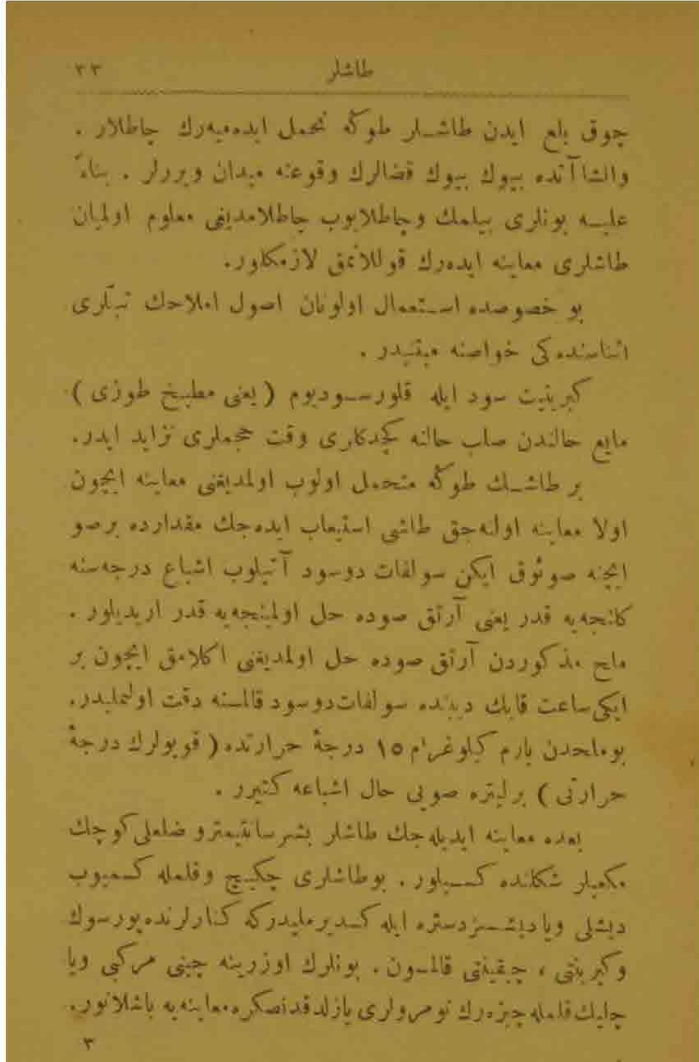 طاشلر ٣٣
چوق بلع ایدن طاشــلر طوكه تحمل ایده‌میه‌رك چاطلار .
وانشاآتده بیوك بیوك قضالرك وقوعنه میدان ویررلر . بناءً
علیــه بونلری بیلمك وچاطلایوب چاطلامدیغی معلوم اولمیان
طاشلری معاینه ایده‌رك قوللانمق لازمكلور.
بو خصوصده اســتعمال اولونان اصول املاحك تبلّری
اثناسنده‌كی خواصنه مبتنیدر .
كبریتیت سود ایله قلورســودیوم ( یعنی مطبخ طوزی )
مایع حالندن صلب حالنه كچدكلری وقت حجملری تزاید ایدر.
بر طاشــك طوكه متحمل اولوب اولمدیغنی معاینه ایچون
اولا معاینه اولنه‌جق طاشی استیعاب ایده‌جك مقدارده برصو
ایچنه صوئوق ایكن سولفات دوسود آتیلوب اشباع درجه‌سنه
كلنجه‌یه قدر یعنی آرتق صوده حل اولمینجه‌یه قدر اریدیلور .
ملح مذكوردن آرتق صوده حل اولمدیغنی اكلامق ایچون بر
ایكی ساعت قابك دیبنده سولفات‌دوسود قالمسنه دقت اولنملیدر.
بوملحدن یارم كیلوغرام ١٥ درجهٔ حرارتده ( قویولرك درجهٔ
حرارتی ) برلیتره صویی حال اشباعه كتیرر .
بعده معاینه ایدیله‌جك طاشلر بشرسانتیمترو ضلعلی كوچك
مكعبلر شكلنده كســیلور . بوطاشلری چكیچ وقلمله كسمیوب
دیشلی ویادیشــزدستره ایله كسدیرملیدركه كنارلرنده‌پورسوك
وكیرینتی ، چیقینتی قالمــون . بونلرك اوزرینه چینی مركبی ویا
چلیك‌قلمله چیزه‌رك نومرولری یازلدقدنصكره‌معاینه‌یه باشلانور.
٣